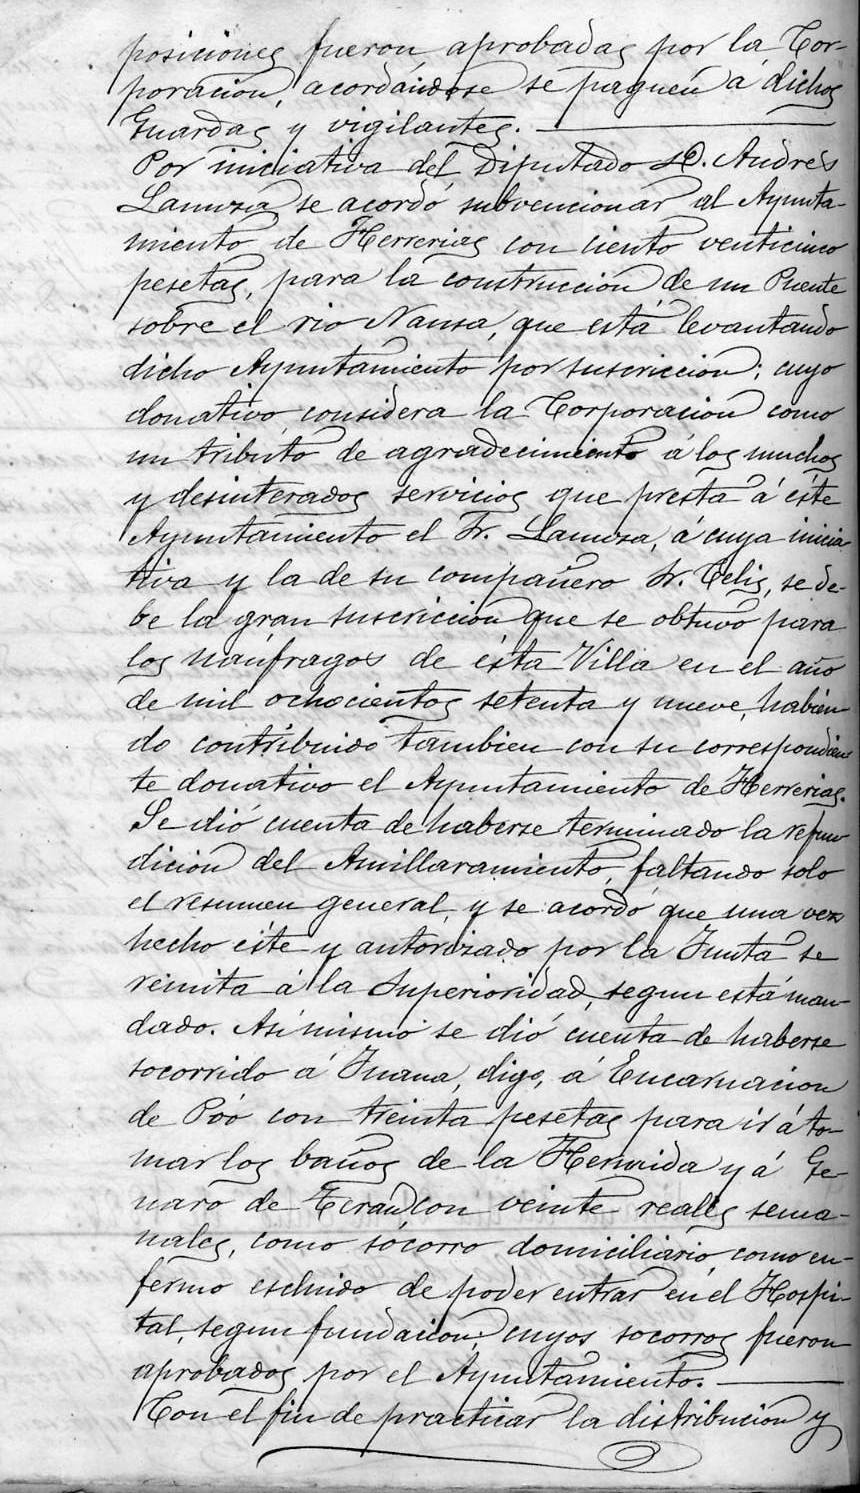 posiciones fueron aprobadas por la Cor-
poracion, acordandose se paguen á dichos
Guardas y vigilantes.
Por iniciativa del Diputado D. Andres
Lanuza se acordó subvencionar al Ayunta-
miento de Herrerias con ciento venticinco
pesetas, para la construccion de un Puente
sobre el rio Nansa, que está levantando
dicho Ayuntamiento por suscricion; cuyo
donativo considera la Corporacion como
un tributo de agradecimiento á los muchos
y desinterados servicios que presta á éste
Ayuntamiento el Sr. Lanuza, á cuya inicia-
tiva y la de su compañero Sr. Celis, se de-
be la gran suscricion que se obtuvo para
los naúfragos de ésta Villa en el año
de mil ochocientos setenta y nueve, habien-
do contribuido tambien con su correspondien-
te donativo el Ayuntamiento de Herrerias.
Se dió cuenta de haberse terminado la refun-
dicion del Amillaramiento, faltando solo
el resumen general, y se acordó que una vez
hecho éste y autorizado por la Junta se
remita á la Superioridad, segun está man-
dado. Asi mismo se dió cuenta de haberse
socorrido á Juana, digo, á Encarnacion
de Póo con treinta pesetas para ir á to-
mar los baños de la Hermida y á Ge-
naro de Teran con veinte reales sema-
nales, como socorro domiciliario, como en-
fermo escluido de poder entrar en el Hospi-
tal, segun fundacion; cuyos socorros fueron
aprobados por el Ayuntamiento.
Con el fin de practicar la distribucion y